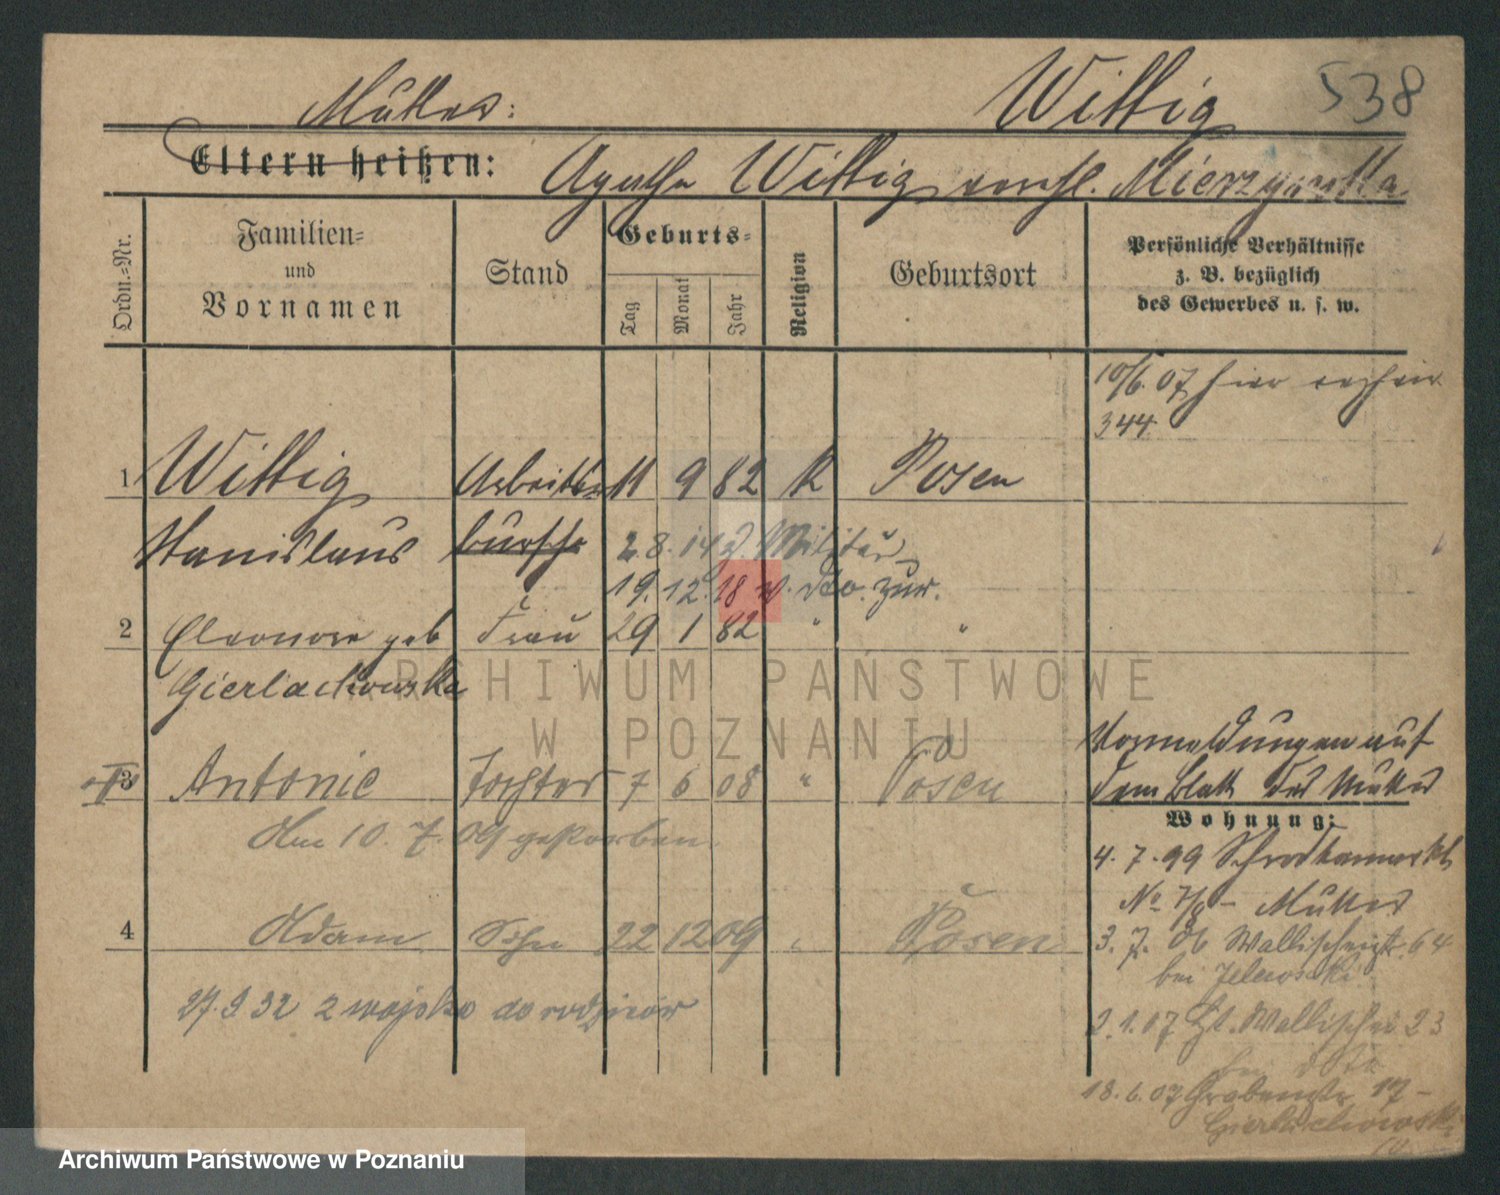 538
Mutter: Wittig
Eltern heißen: Agatha Wittig verehl. Mierzynska
Ordn.-Nr.
Familien-
und
Vornamen
Stand
Geburts-
Tag
Monat
Jahr
Religion
Geburtsort
Persönliche Verhältnisse
z. B. bezüglich
des Gewerbes u. s. w.
10/6. 07 hier
344
1 Wittig Arbeits 11 9 82 K Posen
Stanislaus bursche 2. 8. 14 z Militär
19. 12. 18 v. dto. zur.
2 Eleonore geb Frau 29 1 82 " "
Gierlachowska
3 Antonie Tochter 7 6 08 " Posen
Am 10. 7. 09 gestorben.
Vormeldungen auf
dem Blatt der Mutter
Wohnung:
4. 7. 99 Schrodkamarkt
No 7/8 - Mutter
4 Adam Sohn 22 12 09 " Posen
3. 7. 06 Wallischeistr. 64
bei
27. 9 32 z wojska do rodziców
2. 1. 07 Wallischei 23
18. 6. 07 Grabenstr. 17 -
Gierlachowski
ARCHIWUM PAŃSTWOWE
W POZNANIU
Archiwum Państwowe w Poznaniu